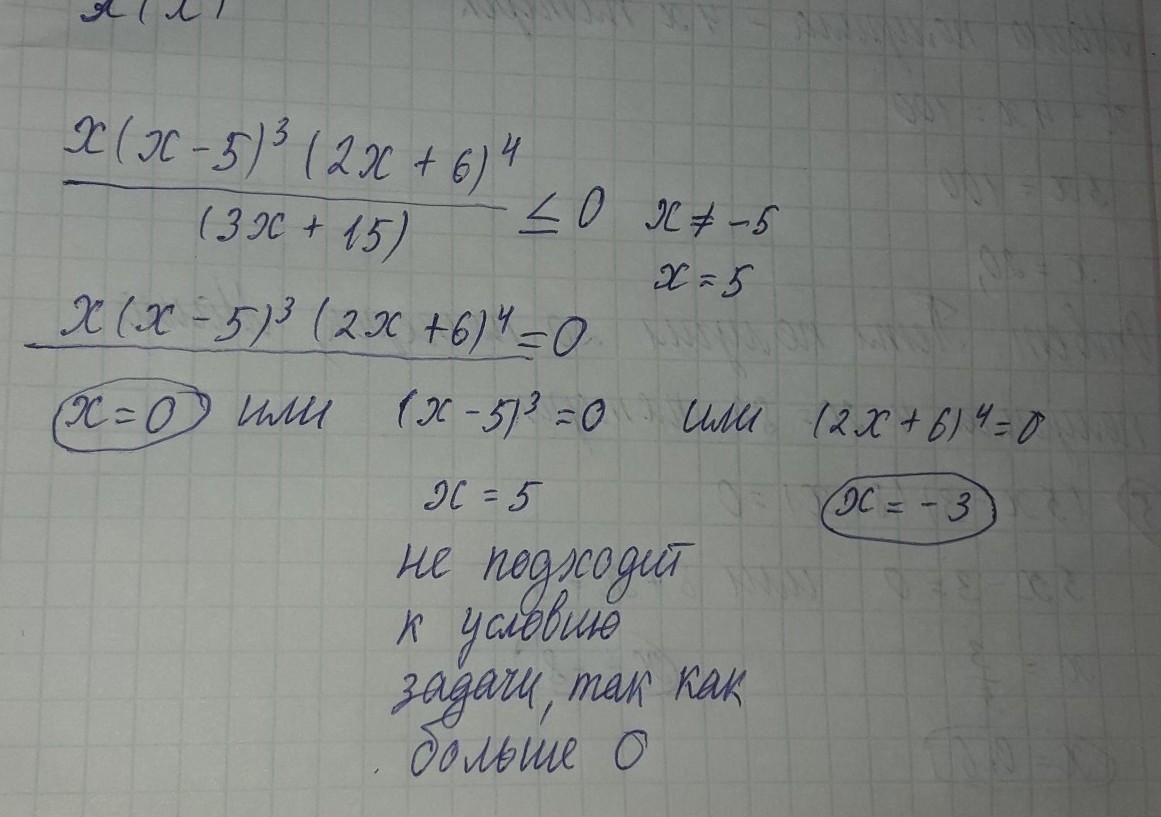 x(x-5)³(2x+6)⁴
(3x+15) ≤ 0 x ≠ -5
x = 5
x(x-5)³(2x+6)⁴ = 0
x = 0 или (x-5)³ = 0 или (2x+6)⁴ = 0
x = 5 x = -3
не подходит
к условию
задачи, так как
больше 0